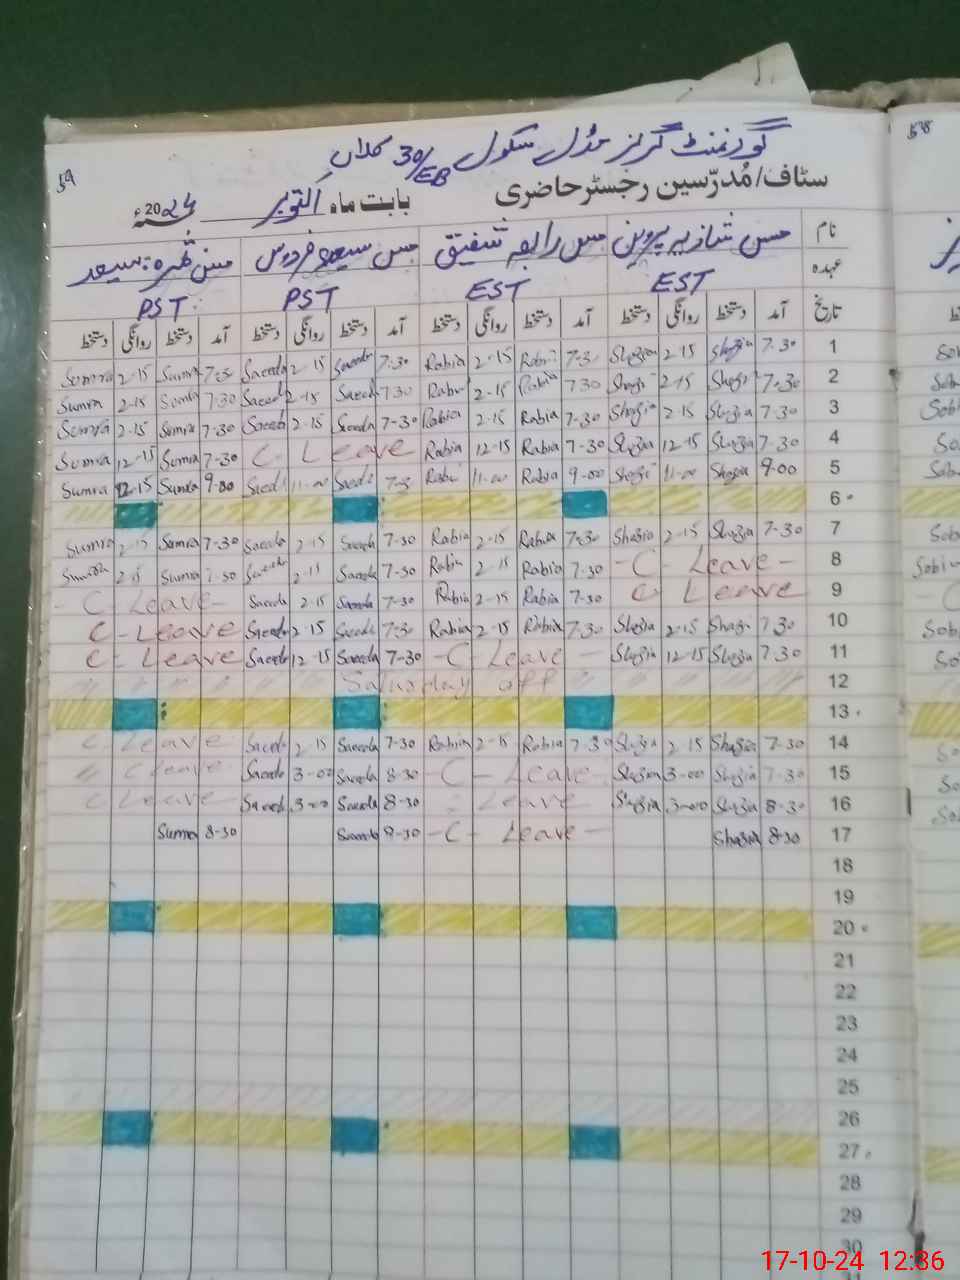 59
58
گورنمنٹ گرلز مڈل سکول 30/EB کلاں
سٹاف/مُدرّسین رجسٹر حاضری
بابت ماہ اکتوبر 2024ء
نام مس شازیہ پروین مس رابعہ شفیق مس سعیدہ فردوس
عہدہ EST EST PST PST
تاریخ آمد دستخط روانگی دستخط آمد دستخط روانگی دستخط آمد دستخط روانگی دستخط آمد دستخط روانگی دستخط
Sumra 2-15 Sumra 7-30 Saeeda 2-15 Saeeda 7-30 Rabia 2-15 Rabia 7-30 Shazia 2-15 Shazia 7-30 1
Sumra 2-15 Sumra 7-30 Saeeda 2-15 Saeeda 7-30 Rabia 2-15 Rabia 7-30 Shazia 2-15 Shazia 7-30 2
Sumra 2-15 Sumra 7-30 Saeeda 2-15 Saeeda 7-30 Rabia 2-15 Rabia 7-30 Shazia 2-15 Shazia 7-30 3
Sumra 12-15 Sumra 7-30 C Leave Rabia 12-15 Rabia 7-30 Shazia 12-15 Shazia 7-30 4
Sumra 12-15 Sumra 9-00 Saeeda 11-00 Saeeda 7-3 Rabia 11-00 Rabia 9-00 Shazia 11-00 Shazia 9-00 5
6
Sumra 2-15 Sumra 7-30 Saeeda 2-15 Saeeda 7-30 Rabia 2-15 Rabia 7-30 Shazia 2-15 Shazia 7-30 7
Sumra 2-15 Sumra 7-30 Saeeda 2-15 Saeeda 7-30 Rabia 2-15 Rabia 7-30 - C - Leave - 8
- C - Leave - Saeeda 2-15 Saeeda 7-30 Rabia 2-15 Rabia 7-30 C Leave 9
C - Leave Saeeda 2-15 Saeeda 7-30 Rabia 2-15 Rabia 7-30 Shazia 2-15 Shazia 7-30 10
C - Leave Saeeda 12-15 Saeeda 7-30 - C - Leave - Shazia 12-15 Shazia 7-30 11
Saturday off 12
13
C Leave Saeeda 2-15 Saeeda 7-30 Rabia 2-15 Rabia 7-30 Shazia 2-15 Shazia 7-30 14
C Leave Saeeda 3-00 Saeeda 8-30 - C - Leave Shazia 3-00 Shazia 7-30 15
C Leave Saeeda 3-00 Saeeda 8-30 - Leave Shazia 3-00 Shazia 8-30 16
Sumra 8-30 Saeeda 8-30 - C - Leave - Shazia 8-30 17
18
19
20
21
22
23
24
25
26
27
28
29
30
17-10-24 12:36